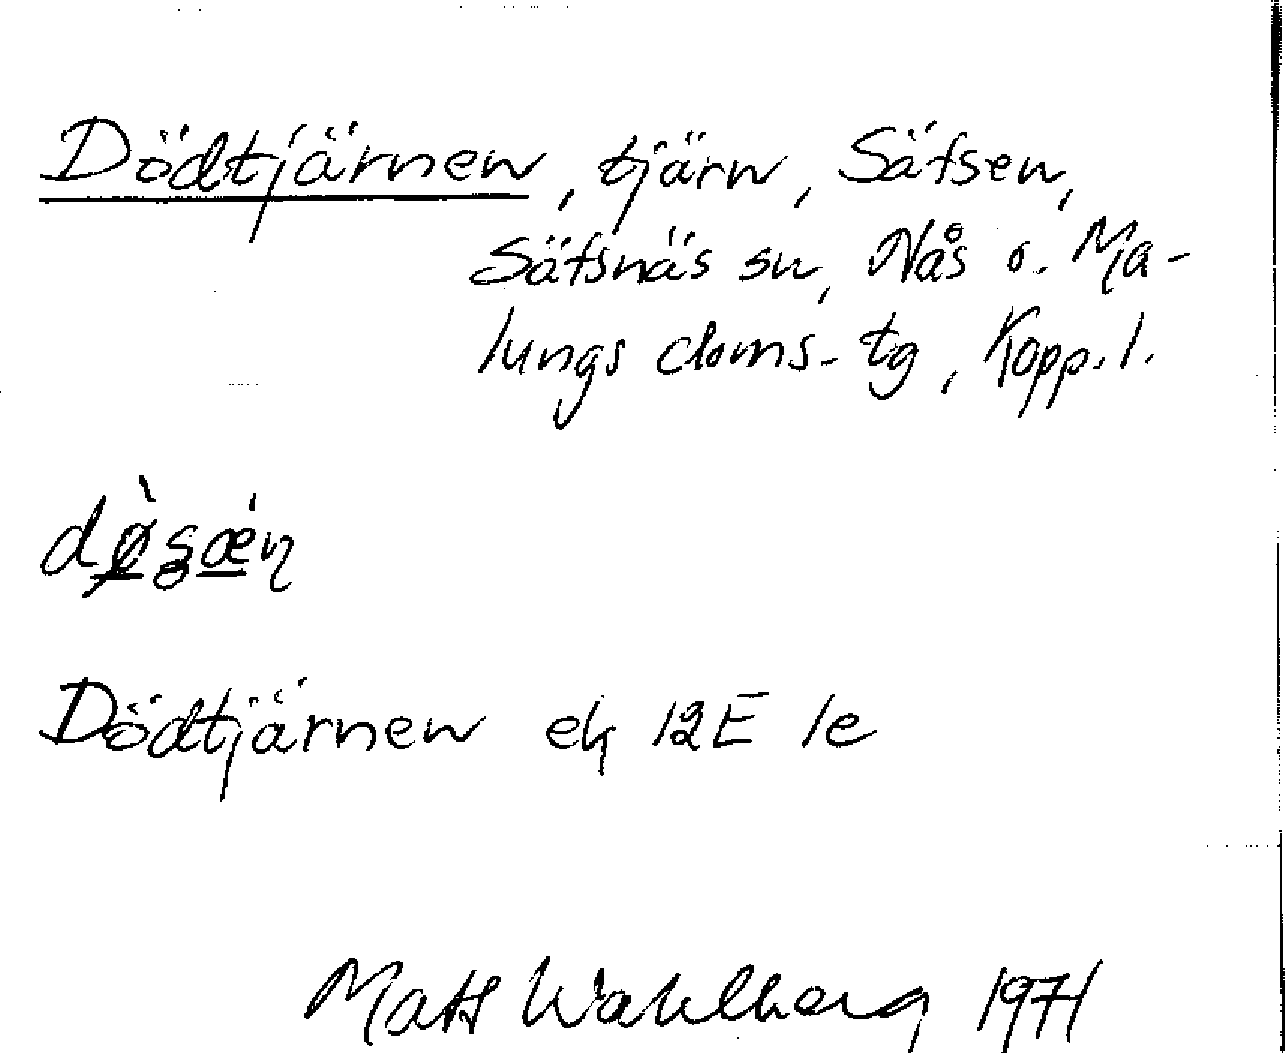 Dödtjärnen, tjärn, Säfsen,
Säfsnäs sn, Nås o. Ma-
lungs doms. tg, Kopp. l.
Dödtjärnen ek 12E 1e
Mats Wahlberg 1971